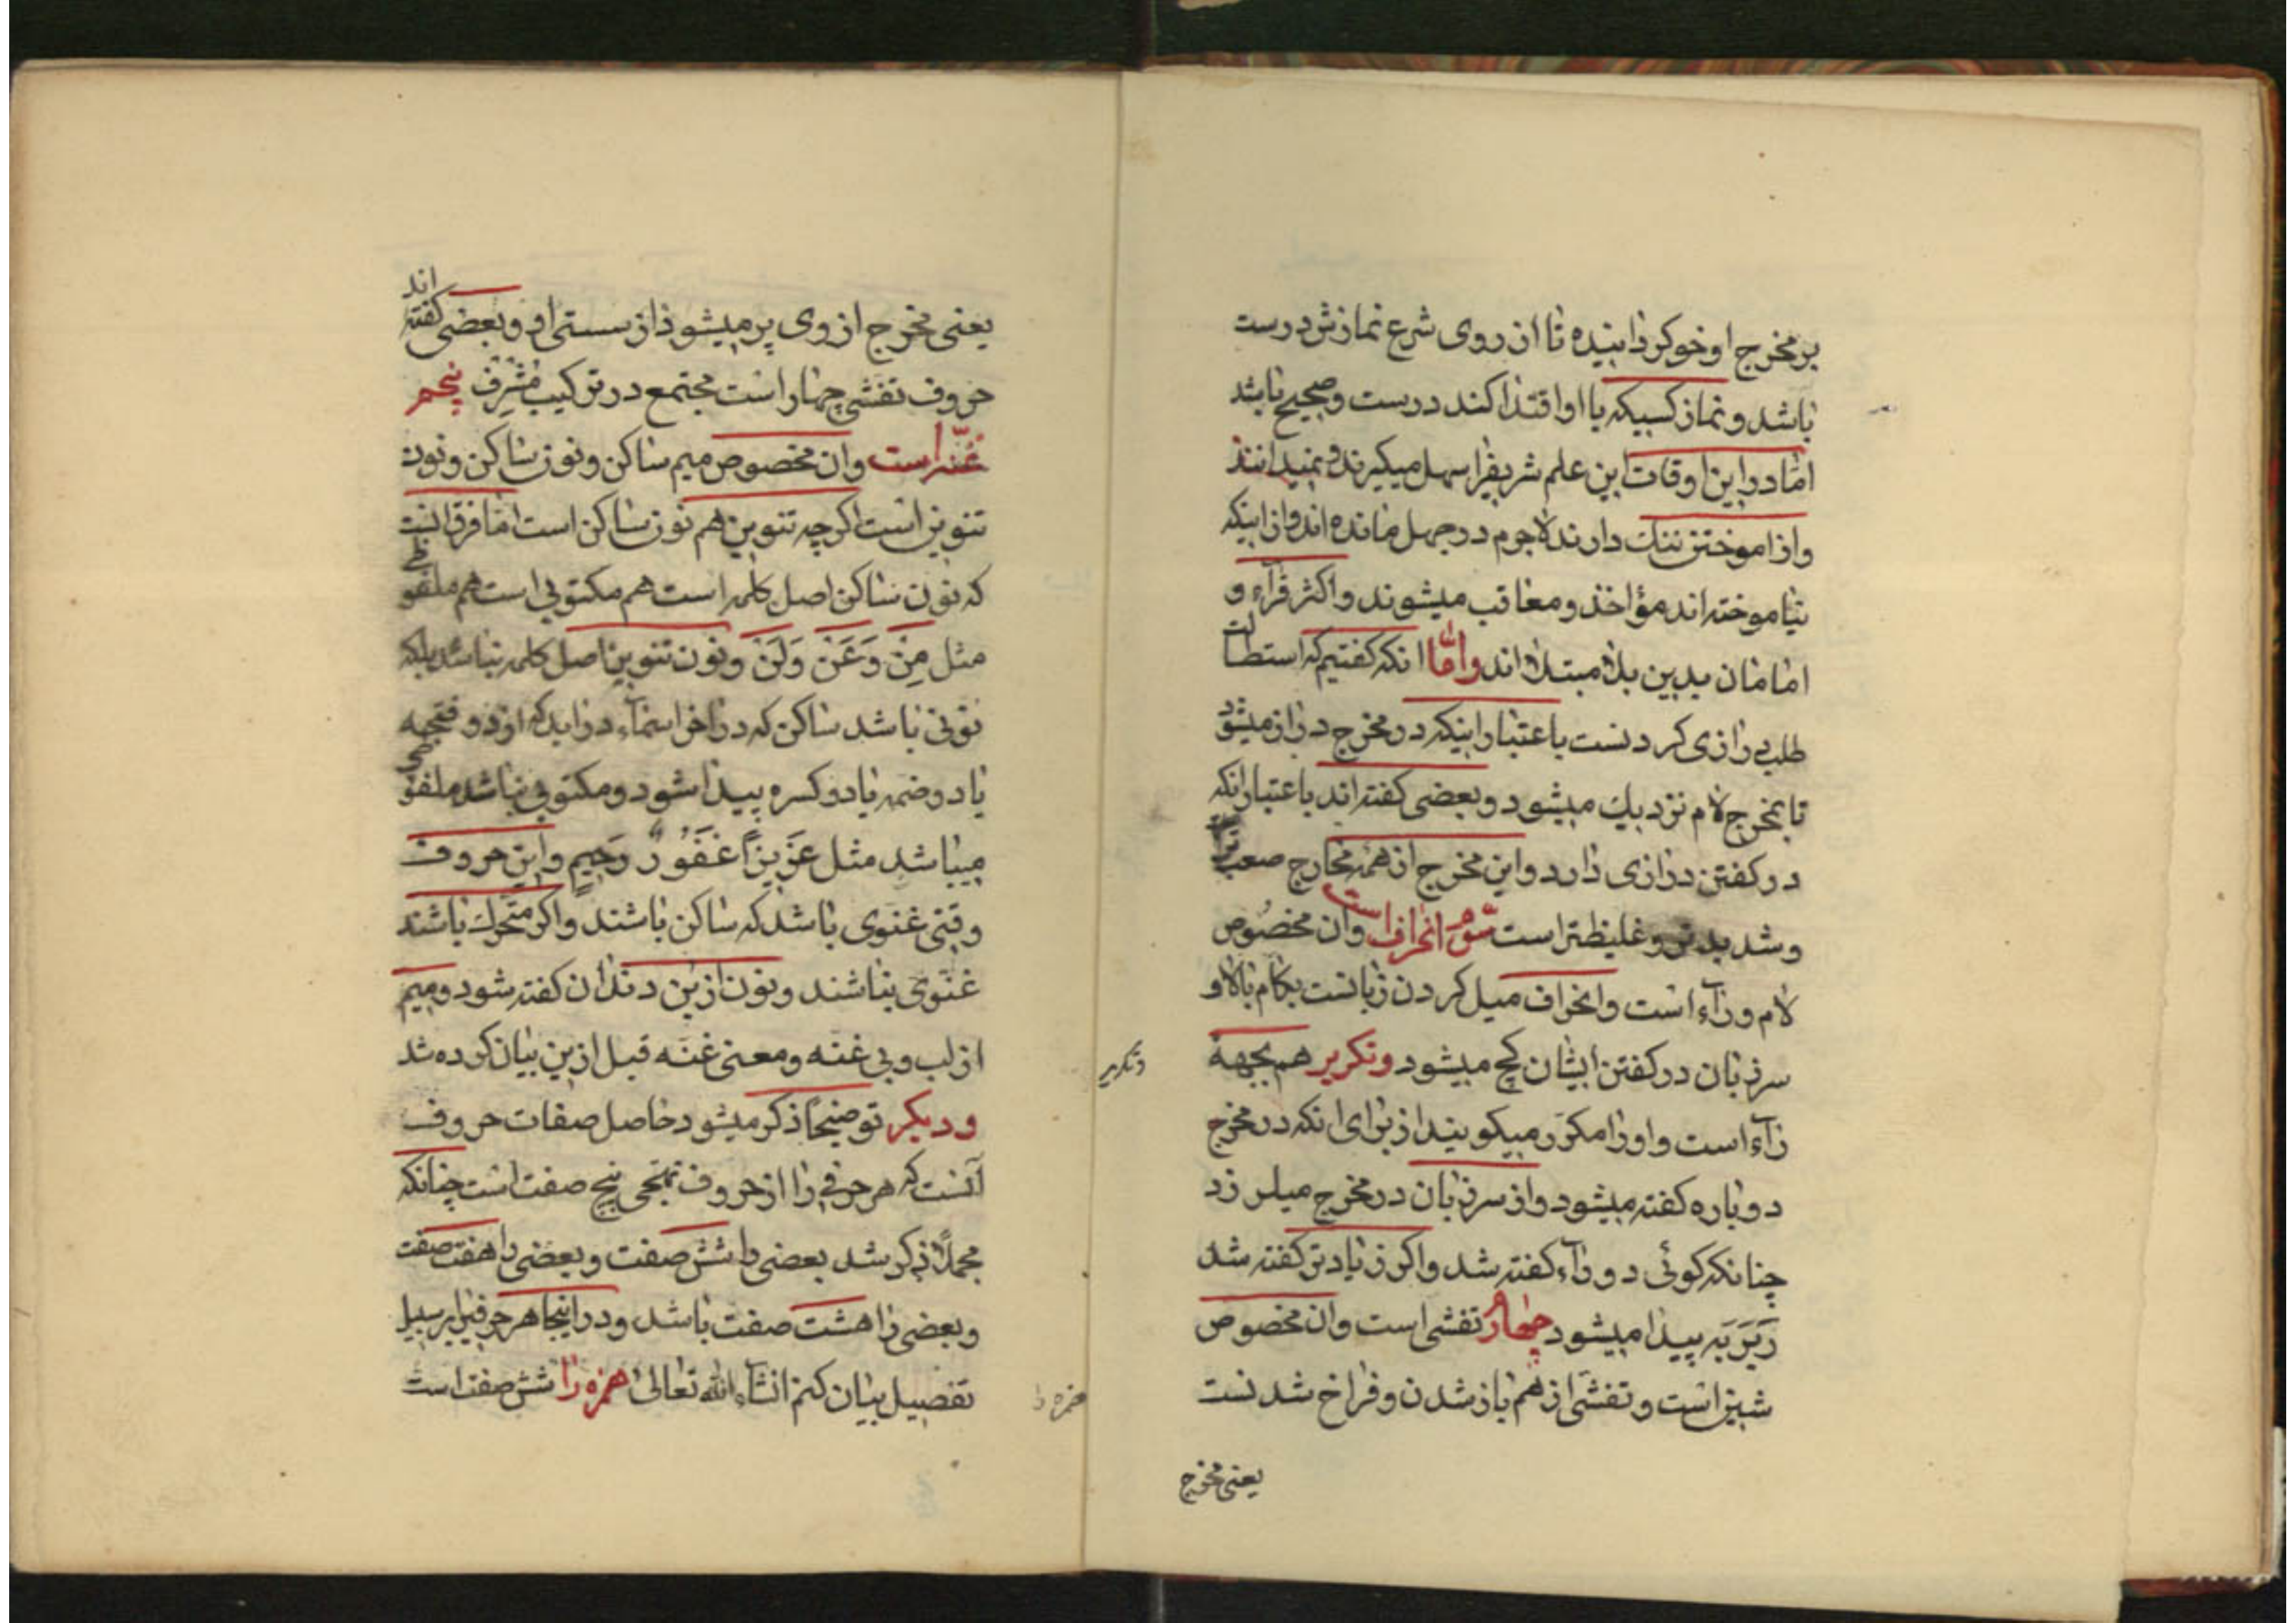 بر مخرج او خو کردانیده تا از روی شرع نمازش درست
باشد و نماز کسیکه باو اقتدا کند درست و صحیح باشد
امّا در این اوقات این علم شریفرا سهل میکیرند و نمیدانند
و از اموختن ننک دارند لاجرم در جهل مانده اند و از اینکه
نیاموخته اند مؤاخذ و معاقب میشوند و اکثر قرآء و
امامان بدین بلا مبتلا اند وامّا انکه کفتیم که استطالت
طلب درازی کردنست باعتبار اینکه در مخرج دراز میشود
تا بمخرج لام نزدیک میشود و بعضی کفته اند باعتبار انکه
در کفتن درازی دارد و این مخرج از همه مخارج صعب تر
و شدید تر و غلیظتر است سوّم انحراف است وان مخصوص
لام و رآء است و انحراف میل کردن زبانست بکام بالا و
سر زبان در کفتن ایشان کج میشود و تکریر هم بجهة
رآء است و او را مکرّر میکویند از برای انکه در مخرج
دوباره کفته میشود و از سر زبان در مخرج میلرزد
چنانکه کوئی دو رآء کفته شد و اکر زیادتر کفته شد
رَیَرَیَه پیدا میشود چهارُم تفشی است وان مخصوص
شین است و تفشّی از هم باز شدن و فراخ شدنست
یعنی مخرج
و تکریر
یعنی مخرج از وی پر میشود از سستی او و بعضی کفته اند
حروف تفشی چهار است مجتمع در ترکیب مُشرف پنجم
غنّه است وان مخصوص میم ساکن و نون ساکن و نون
تنوین است اکرچه تنوین هم نون ساکن است امّا فرق انست
که نون ساکن اصل کلمه است هم مکتوبی است هم ملفوظی
مثل مِنْ وَعَنْ وَلَنْ و نون تنوین اصل کلمه نباشد بلکه
نونی باشد ساکن که در اخر اسمآء در اید که از دو فتحه
یا دو ضمه یا دو کسره پیدا شود و مکتوبی نباشد ملفوظی
میباشد مثل عَزیزاً غَفُورٌ رَحیمٍ و این حروف
وقتی غنوی باشد که ساکن باشند و اکر متحرک باشند
غنوی نباشند و نون از بن دندان کفته شود و میم
از لب و بی غنه و معنی غنه قبل ازین بیان کرده شد
و دیکر توضیحاً ذکر میشود حاصل صفات حروف
آنست که هر حرفی را از حروف تهجّی پنج صفت است چنانکه
مجملاً ذکر شد بعضی را شش صفت و بعضی را هفت صفت
و بعضی را هشت صفت باشد و در اینجا هر حرفیرا بر سبیل
تفصیل بیان کنم انشآء الله تعالی همزه را شش صفت است
همزه را